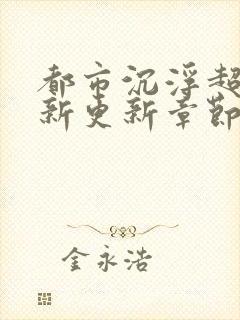 都市沉浮超
新更新章節
金永浩